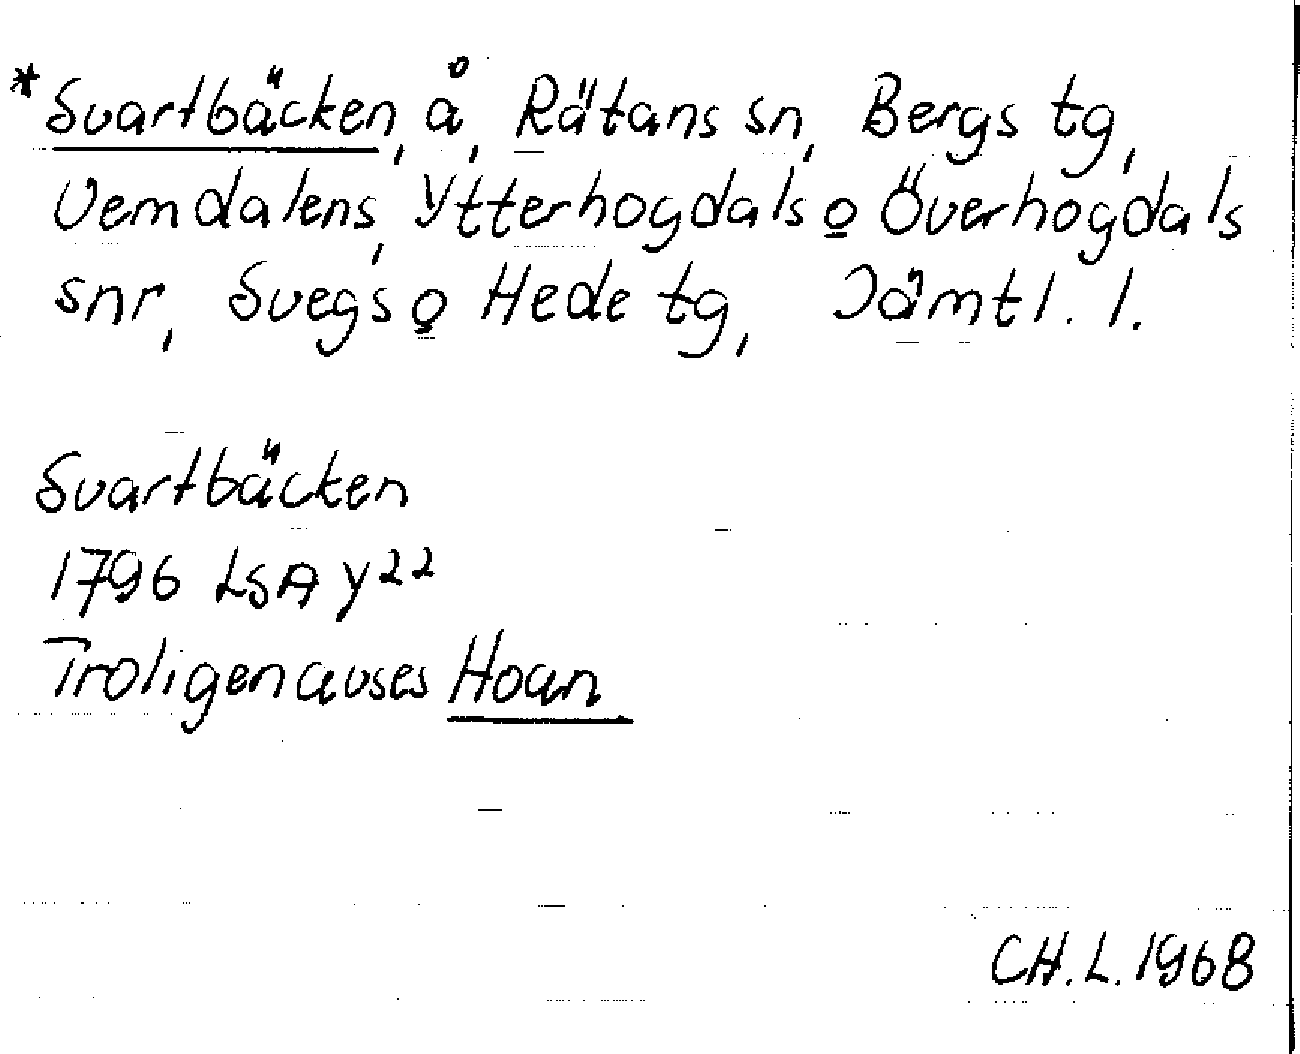 *Svartbäcken, å, Rätans sn, Bergs tg,
Vemdalens, Ytterhogdals o Överhogdals
snr, Svegs o Hede tg, Jämtl. l.
Svartbäcken
1796 LSA Y22
Troligen avses Hoan
CH.L. 1968